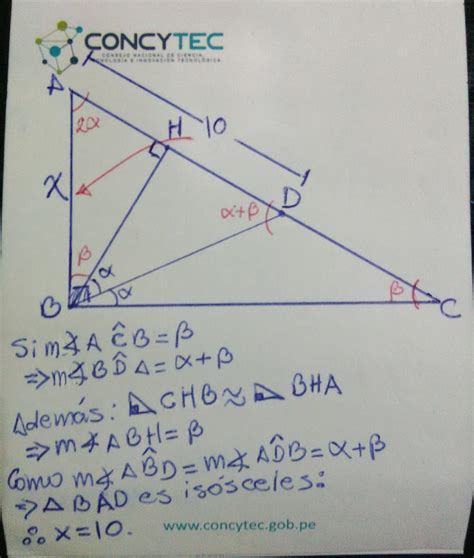 CONCYTEC
CONSEJO NACIONAL DE CIENCIA,
TECNOLOGÍA E INNOVACIÓN TECNOLÓGICA
A
2α
H
10
x
D
α+β
β
α
α
B
β
C
Si m∡AĈB=β
⇒m∡BD̂A=α+β
Además: ⊿CHB≈⊿BHA
⇒m∡ABH=β
Como m∡AB̂D=m∡AD̂B=α+β
⇒△BAD es isósceles:
∴ x=10.
www.concytec.gob.pe